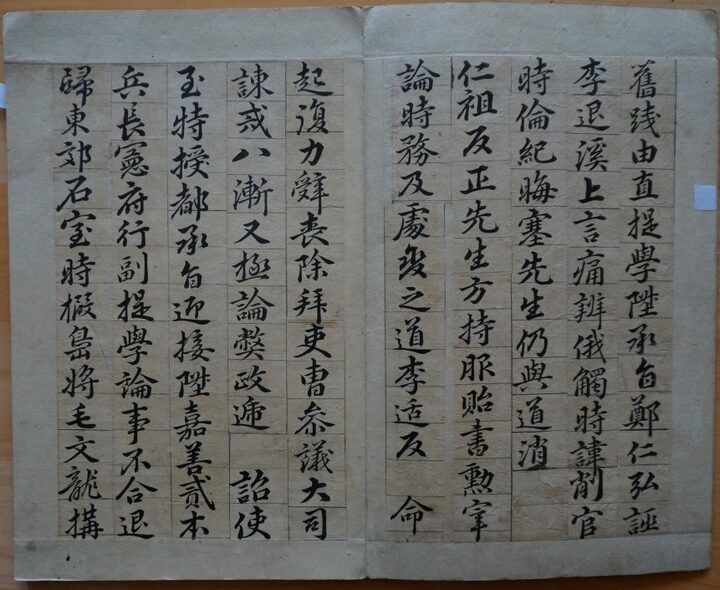 舊踐由直提學陞承旨鄭仁弘誣
李退溪上言痛辨俄觸時諱削官
時倫紀晦塞先生仍與道消
仁祖反正先生方持服貽書勲宰
論時務及處變之道李适反 命
起復力辭喪除拜吏曹叅議大司
諫戒八漸又極論獘政逓 詔使
至特授都承旨迎接陞嘉善貳本
兵長憲府行副提學論事不合退
歸東郊石室時椵島將毛文龍搆